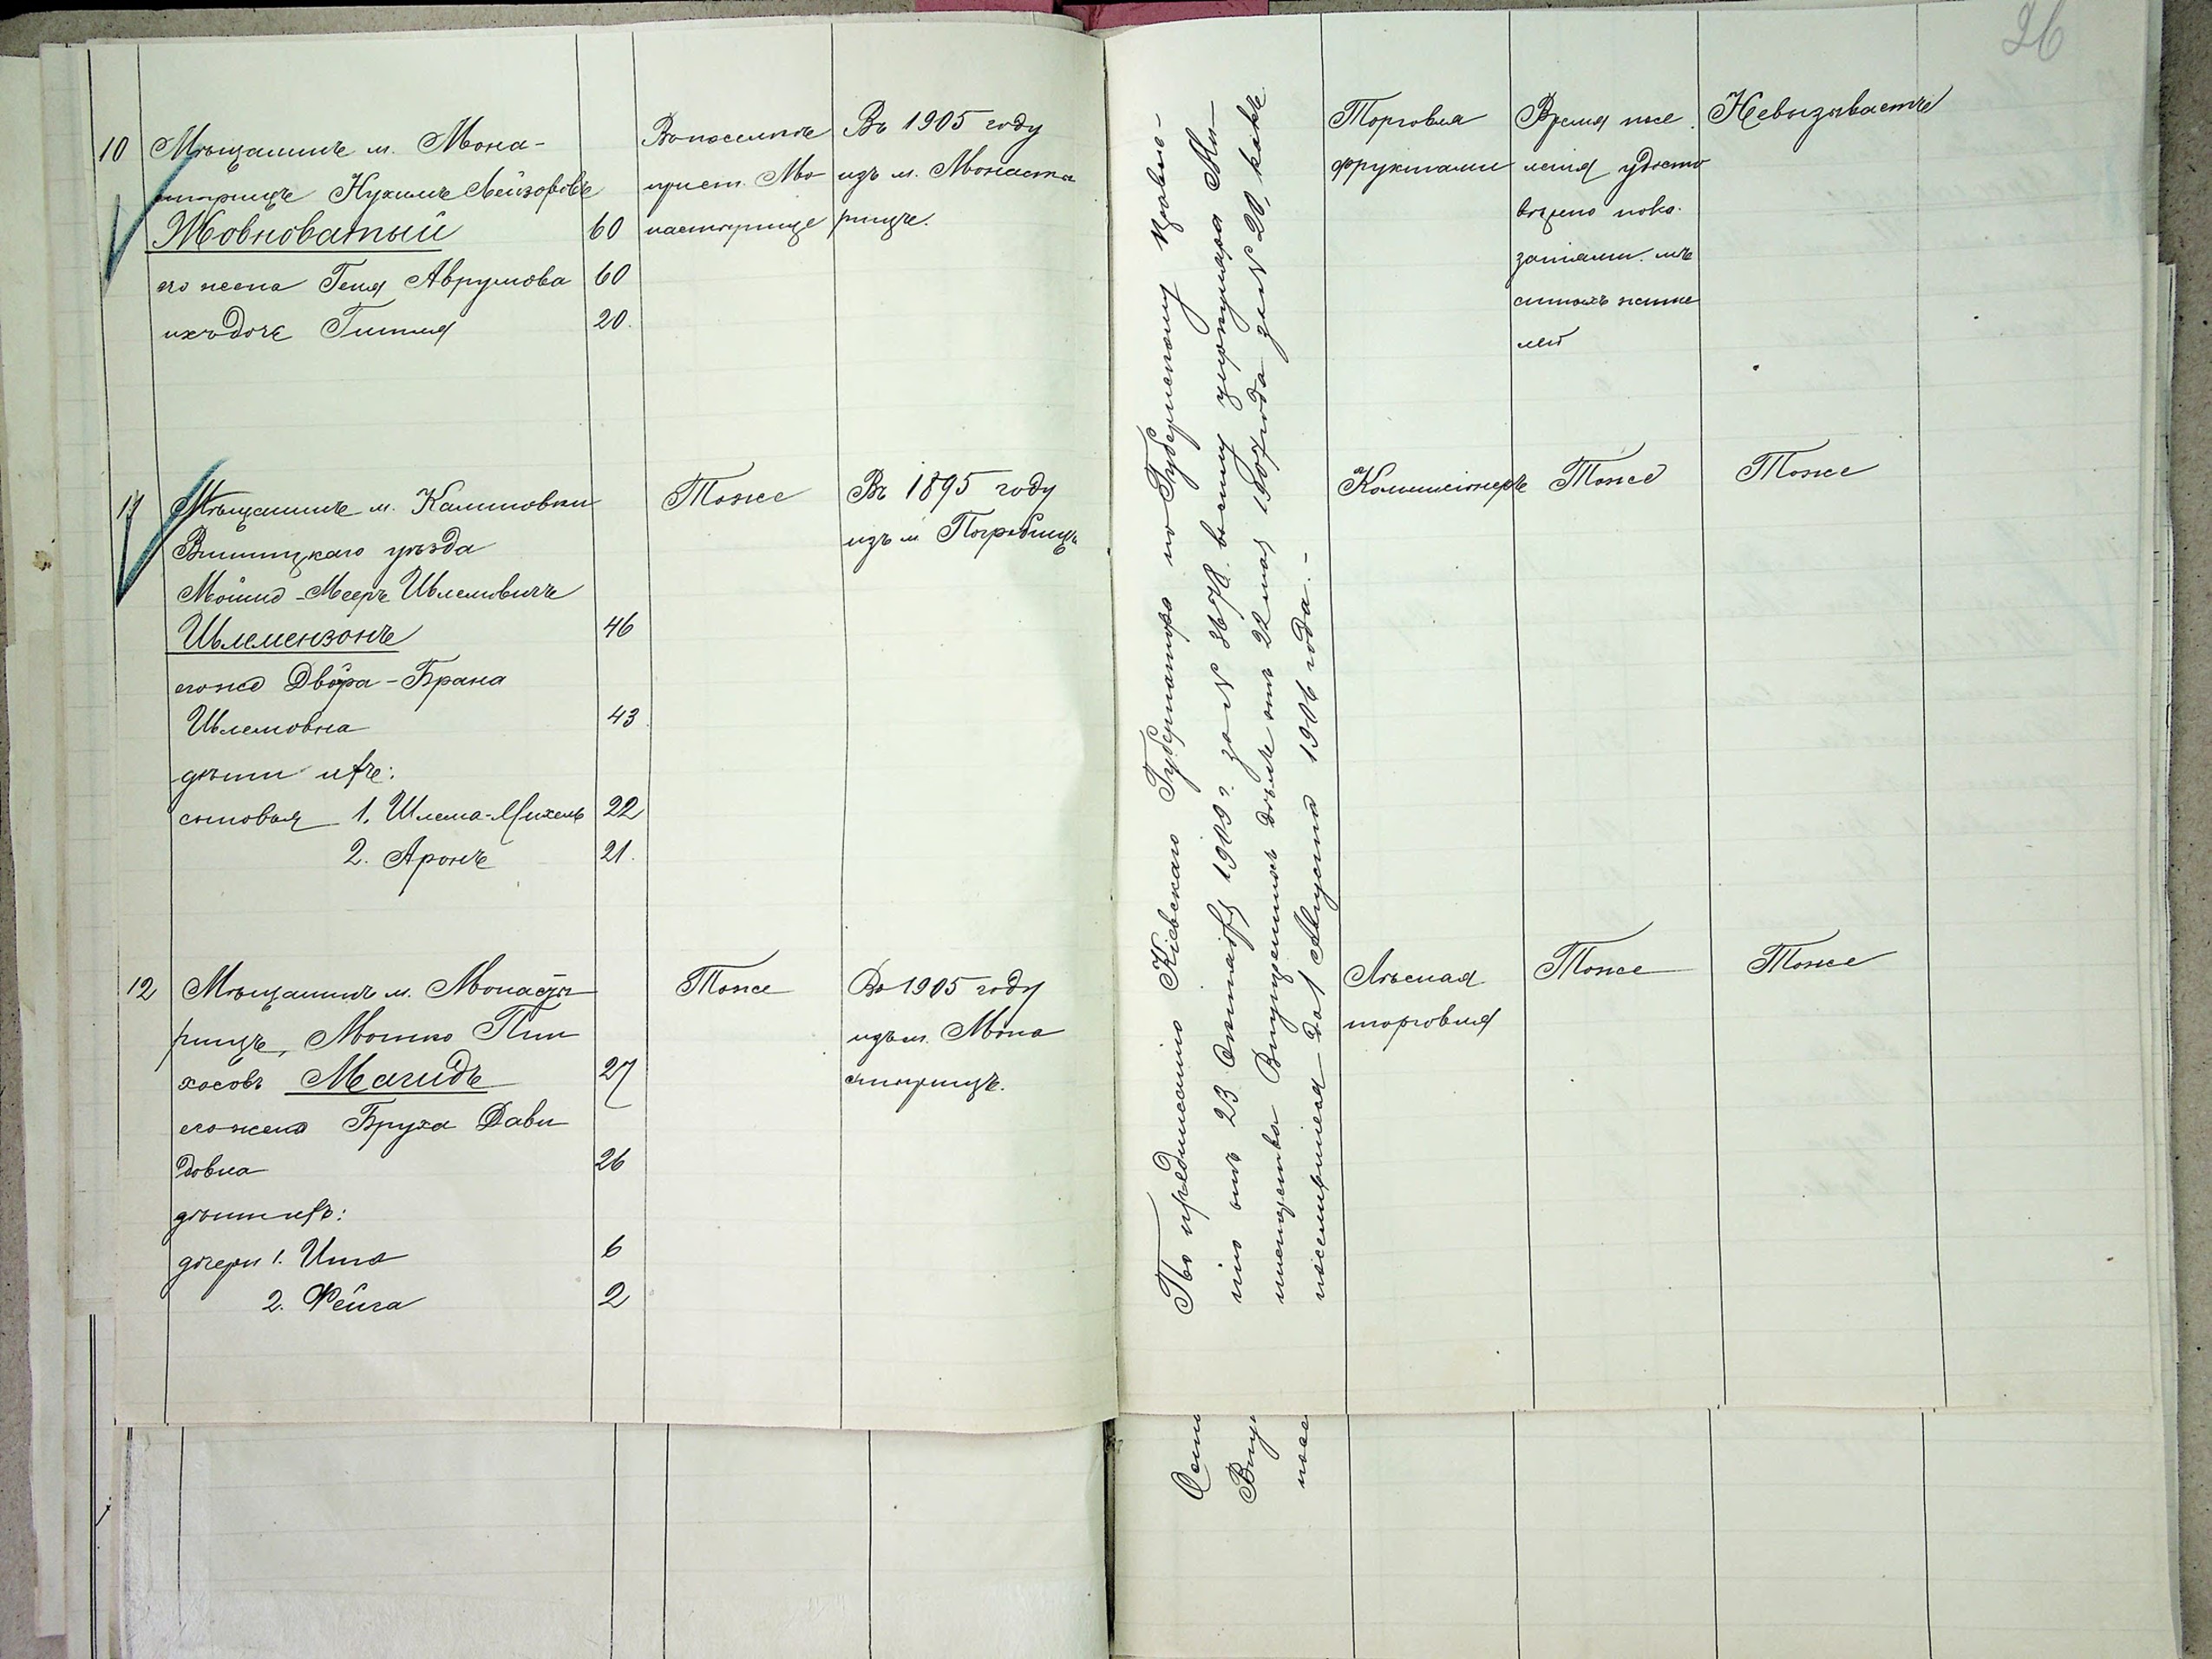 26
10
Мѣщанинъ м. Мона-
стырищъ Нухимъ Лейзоровъ
Жовноватый 60
его жена Геня Аврумова 60
ихъ дочь Гитля 20.
Въ поселкѣ
при ст. Мо
настырище
Въ 1905 году
изъ м. Монасты
рищъ.
Торговля
фруктами
Время посе
ленія удосто
вѣрено пока
заніями мѣ
стныхъ жите
лей
Невызываетъ
11
Мѣщанинъ м. Калиновки
Винницкаго уѣзда
Мошко-Мееръ Шлемовичъ
Шлемензонъ 46
его жена Двойра-Брана
Шлемовна 43
дѣти ихъ:
сыновья 1. Шлема-Михель 22
2. Аронъ 21.
Тоже
Въ 1895 году
изъ м. Погребищъ
Коммисіонеръ
Тоже
Тоже
12
Мѣщанинъ м. Монасты
рищъ, Мошко Пин
хасовъ Магидъ 27
его жена Бруха Дави
довна 26
дѣти ихъ:
дочери 1. Ита 6
2. Фейга 2
Тоже
Въ 1905 году
изъ м. Мона
стырищъ.
Лѣсная
торговля
Тоже
Тоже
По предписанію Кіевскаго Губернатора по Губернскому Правле-
нію отъ 23 Октября 1909 г. за № 3678 въ силу циркуляра Ми-
нистерства Внутреннихъ дѣлъ отъ 22 мая 1907 года за № 20, какъ
поселившіеся до 1 Августа 1906 года. -